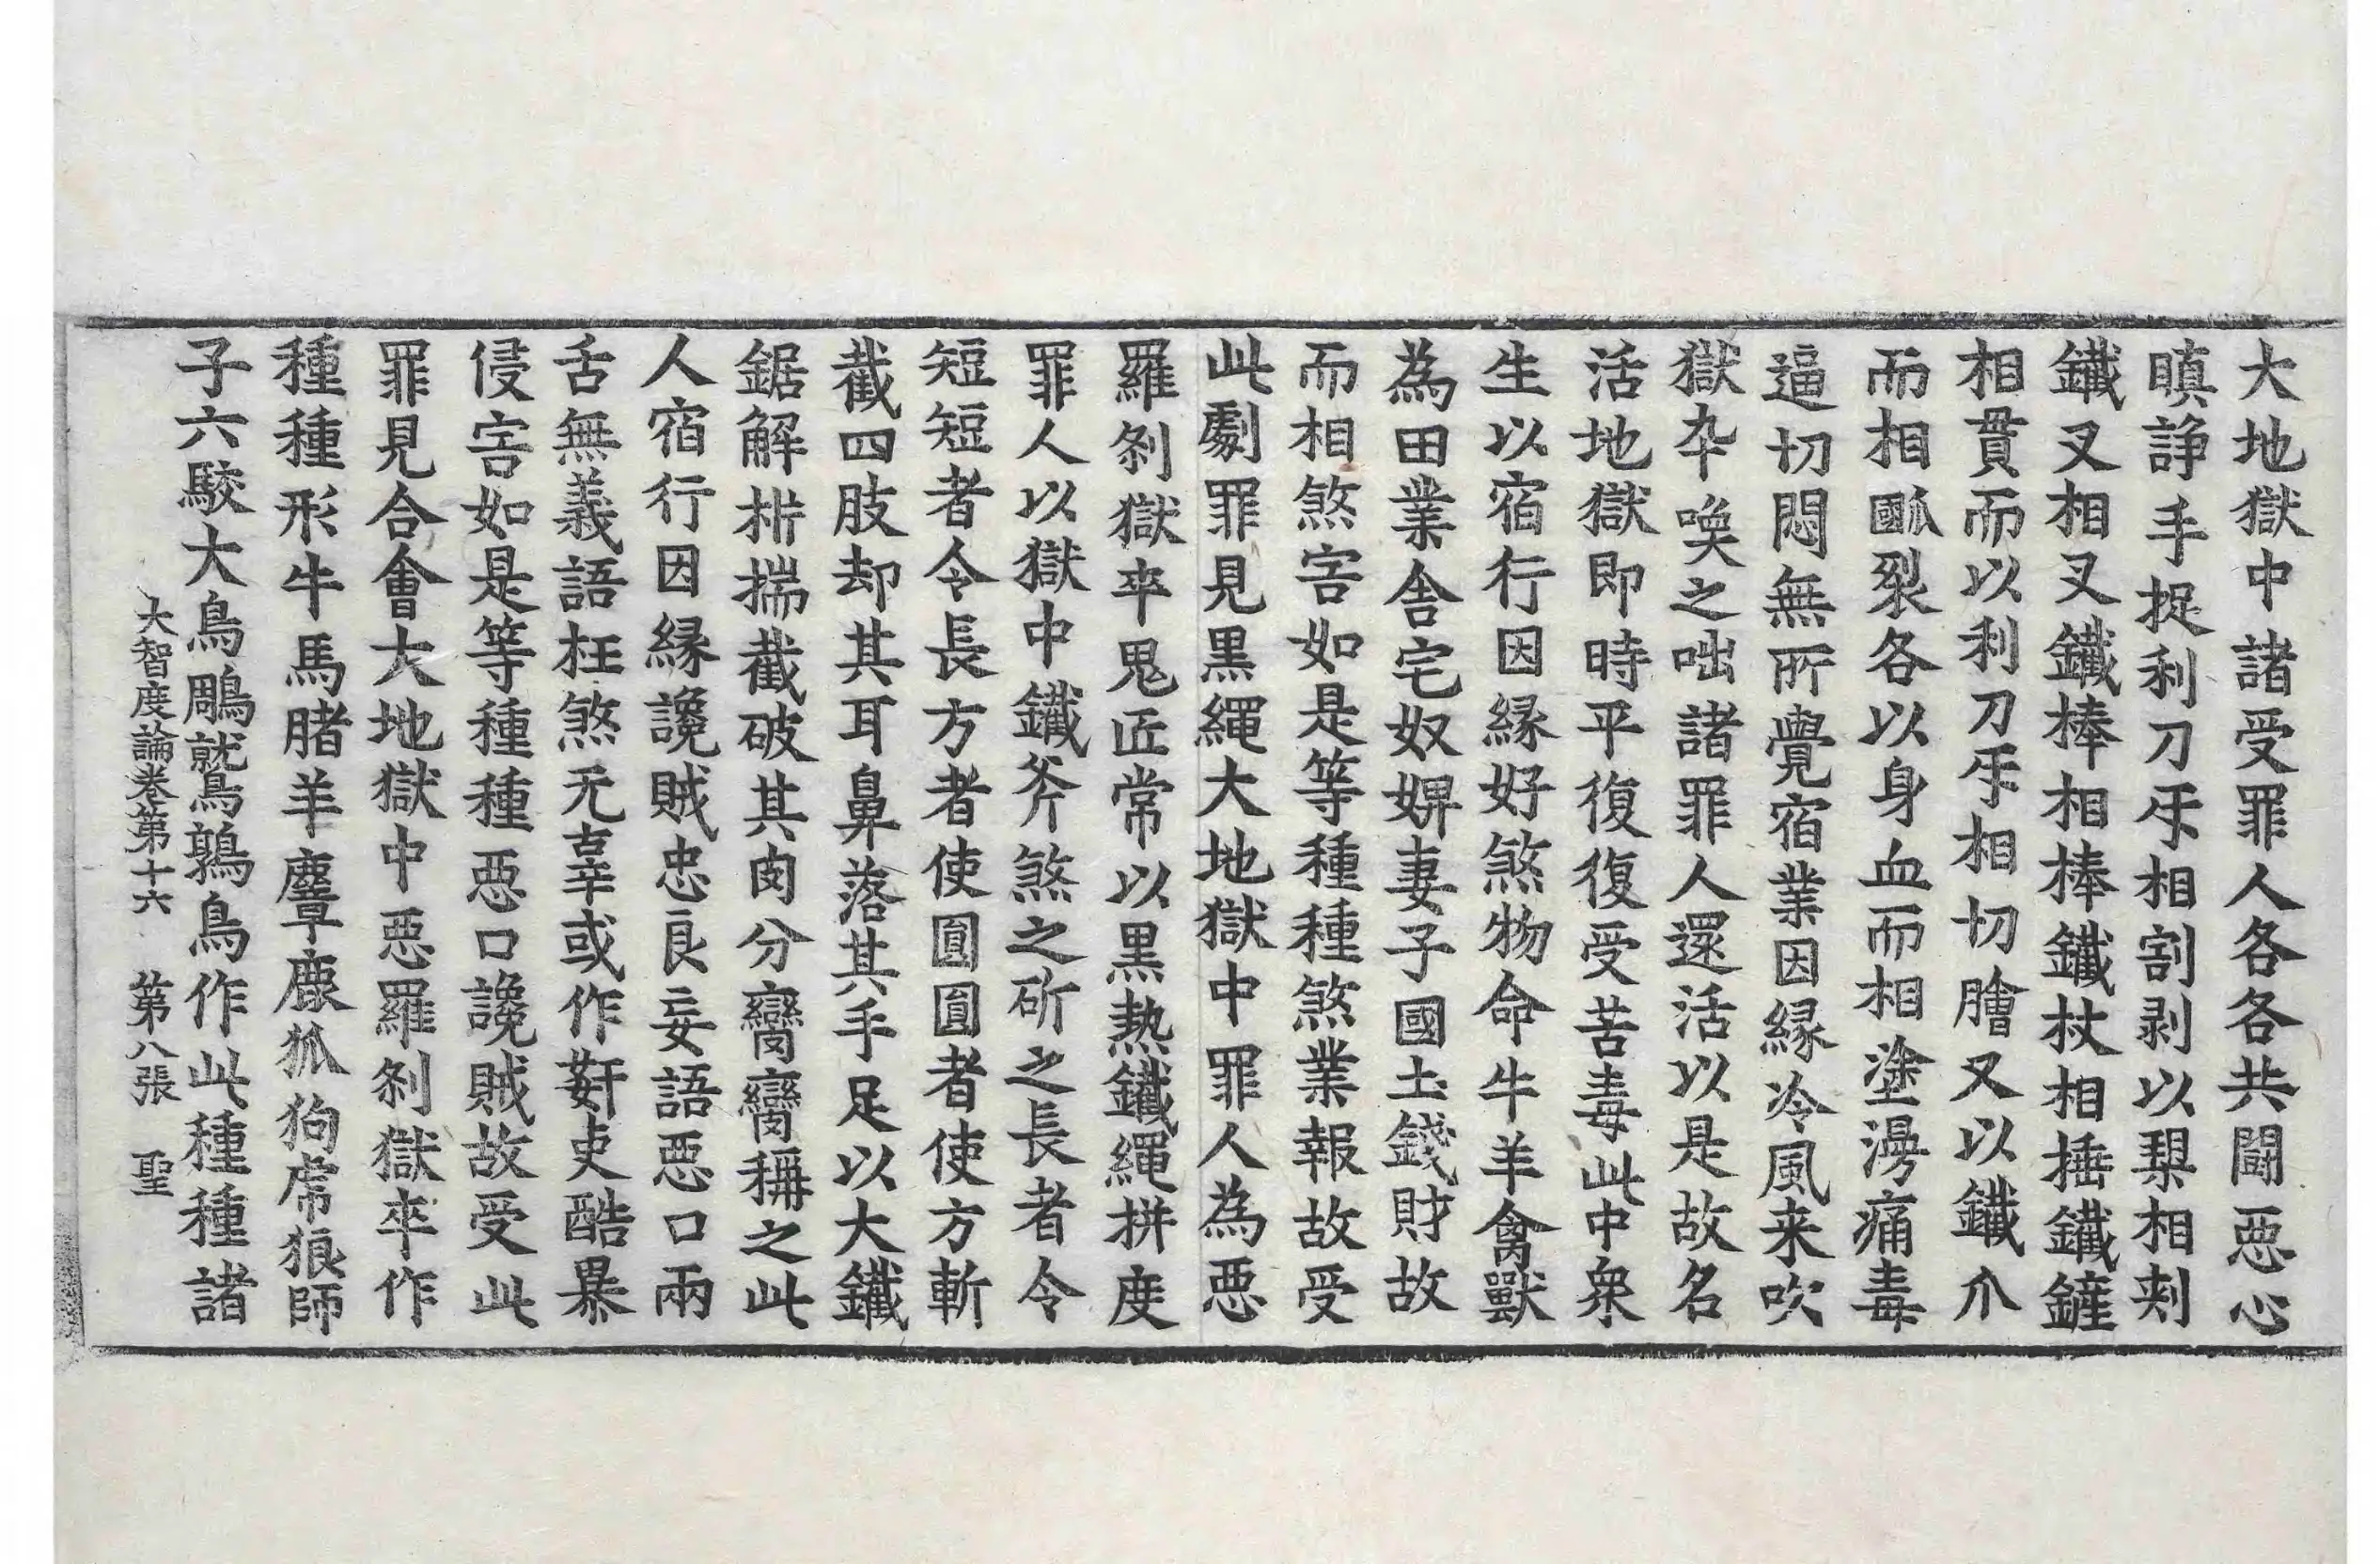 大地獄中諸受罪人各各共鬪惡心
瞋諍手捉利刀㸦相割剥以槊相刺
鐵叉相叉鐵棒相棒鐵杖相捶鐵鏟
相貫而以利刀㸦相切膾又以鐵爪
而相𤬪裂各以身血而相塗漫痛毒
逼切悶無所覺宿業因緣冷風来吹
獄卒喚之咄諸罪人還活以是故名
活地獄即時平復復受苦毒此中衆
生以宿行因緣好煞物命牛羊禽獸
為田業舍宅奴婢妻子國土錢財故
而相煞害如是等種種煞業報故受
此劇罪見黒繩大地獄中罪人為惡
羅剎獄卒鬼匠常以黒熱鐵繩拼度
罪人以獄中鐵斧煞之斫之長者令
短短者令長方者使圓圓者使方斬
截四肢却其耳鼻落其手足以大鐵
鋸解析揣截破其肉分臠臠稱之此
人宿行因緣讒賊忠良妄語惡口兩
舌無義語枉煞无辜或作姧吏酷暴
侵害如是等種種惡口讒賊故受此
罪見合會大地獄中惡羅剎獄卒作
種種形牛馬猪羊麞鹿狐狗虎狼師
子六駮大鳥鵰鷲鶉鳥作此種種諸
大智度論卷第十六 第八張 聖